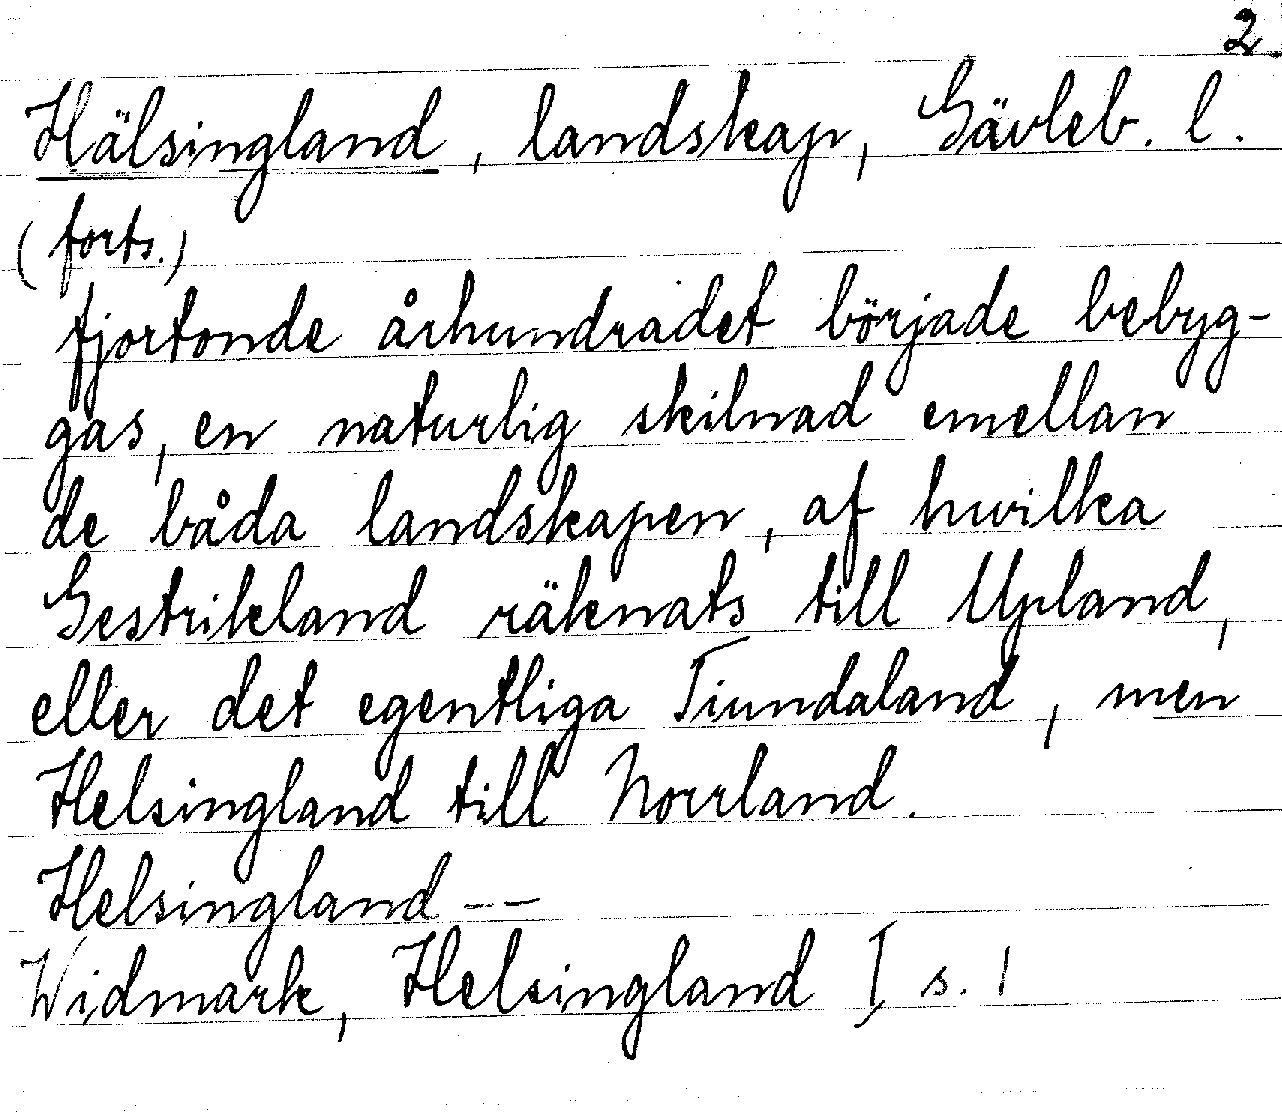 2
Hälsingland, landskap, Gävleb. l.
(forts.)
fjortonde århundradet började bebyg-
gas, en naturlig skilnad emellan
de båda landskapen, af hwilka
Gestrikland räknats till Upland,
eller det egentliga Tiundaland, men
Helsingland till Norrland.
Helsingland --
Widmark, Helsingland I s. 1